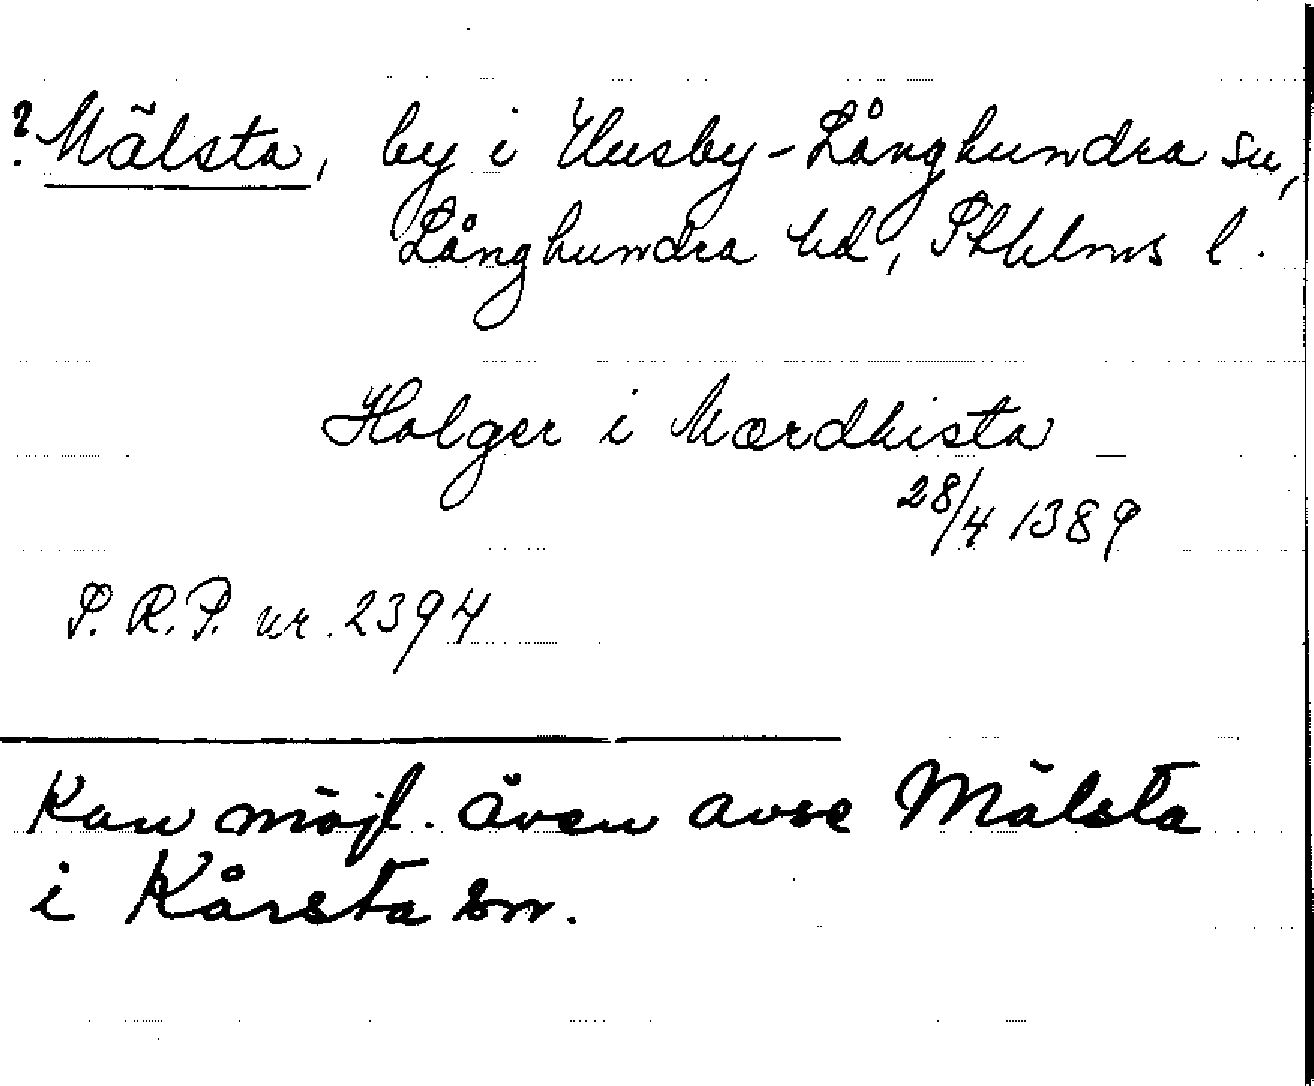 ? Mälsta, by i Husby-Långhundra sn,
Långhundra hd, Sthlms l.
Holger i Mærdhista
28/4 1389
S.R.P. nr. 2394
Kan möjl. även avse Mälsta
i Kårsta sn.